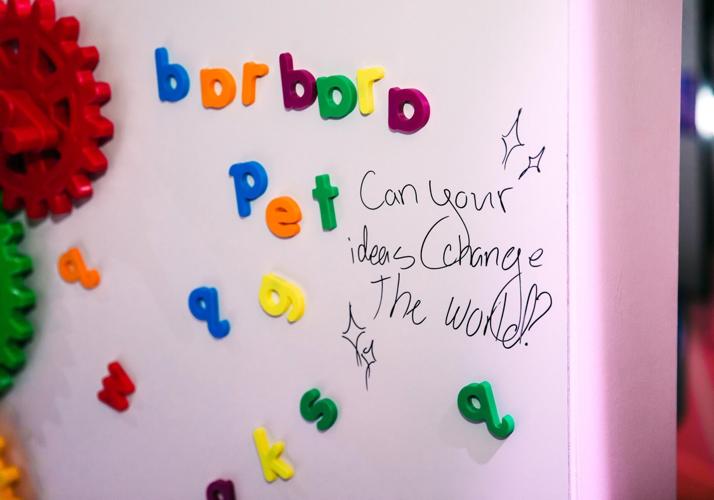 barbara
pet
Can your
ideas change
The world?
a
q
g
w
s
k
q